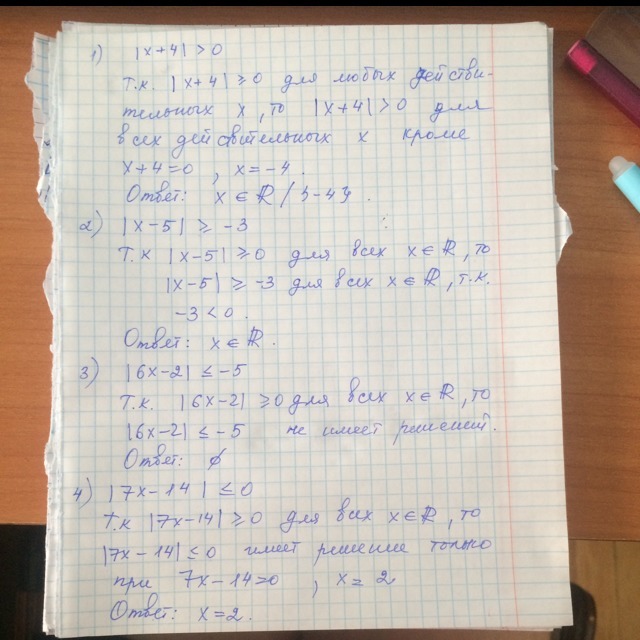 1) |x+4| > 0
Т.к. |x+4| ≥ 0 для любых действи-
тельных x, то |x+4| > 0 для
всех действительных x кроме
x+4=0, x=-4.
Ответ: x ∈ ℝ / {-4}.
2) |x-5| ≥ -3
Т.к |x-5| ≥ 0 для всех x∈ℝ, то
|x-5| ≥ -3 для всех x∈ℝ, т.к.
-3 < 0.
Ответ: x∈ℝ.
3) |6x-2| ≤ -5
Т.к. |6x-2| ≥ 0 для всех x∈ℝ, то
|6x-2| ≤ -5 не имеет решений.
Ответ: ∅
4) |7x-14| ≤ 0
Т.к |7x-14| ≥ 0 для всех x∈ℝ, то
|7x-14| ≤ 0 имеет решение только
при 7x-14=0, x=2
Ответ: x=2.